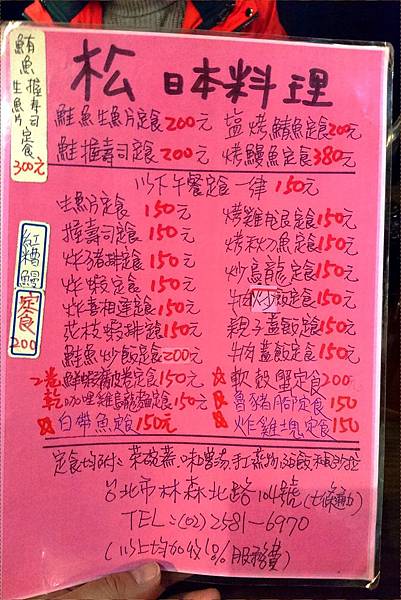 鮪魚握壽司
生魚片定食
300元
松 日本料理
鮭魚生魚片定食200元
塩烤鯖魚定食200元
鮭握壽司定食200元
烤鰻魚定食380元
以下午餐定食一律150元
紅糟鰻
定食
200
生魚片定食 150元
握壽司定食 150元
炸豬排定食 150元
炸蝦定食 150元
炸喜相逢定食 150元
花枝蝦排定食 150元
鮭魚炒飯定食200元
2卷 鮮蝦腐皮卷定食150元
乾咖哩雞烏龍麵定食150元
白帶魚定食150元
烤雞腿定食150元
烤秋刀魚定食150元
炒烏龍定食150元
牛肉炒飯定食150元
親子蓋飯定食150元
牛肉蓋飯定食150元
軟殼蟹定食200
魯豬腳定食150
炸雞塊定食150
定食均附:茶碗蒸、味噌湯、手工
台北市林森北路104號(七條通)
TEL:(02)2581-6970
(以上均60分10%服務費)